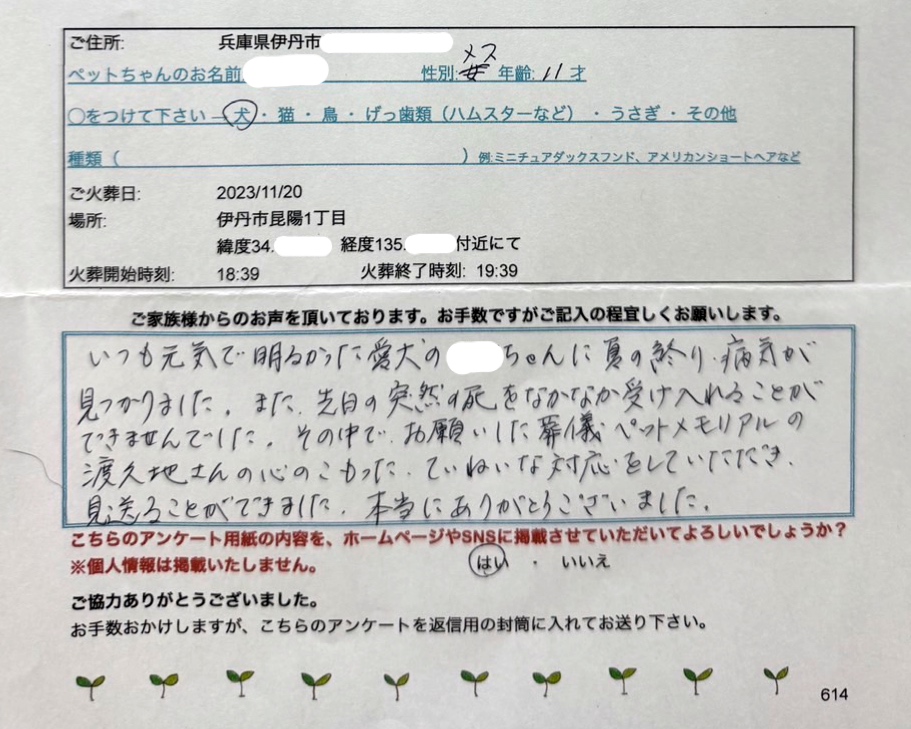 ご住所: 兵庫県伊丹市
ペットちゃんのお名前 性別: メス 年齢: 11才
〇をつけて下さい – 犬・猫・鳥・げっ歯類（ハムスターなど）・うさぎ・その他
種類（ ）例:ミニチュアダックスフンド、アメリカンショートヘアなど
ご火葬日: 2023/11/20
場所: 伊丹市昆陽1丁目
緯度34. 経度135. 付近にて
火葬開始時刻: 18:39 火葬終了時刻: 19:39
ご家族様からのお声を頂いております。お手数ですがご記入の程宜しくお願いします。
いつも元気で明るかった愛犬の ちゃんに夏の終り、病気が
見つかりました。また、先日の突然の死をなかなか受け入れることが
できませんでした。その中で、お願いした葬儀ペットメモリアルの
渡久地さんの心のこもった、ていねいな対応をしていただき、
見送ることができました。本当にありがとうございました。
こちらのアンケート用紙の内容を、ホームページやSNSに掲載させていただいてよろしいでしょうか？
※個人情報は掲載いたしません。 はい ・ いいえ
ご協力ありがとうございました。
お手数おかけしますが、こちらのアンケートを返信用の封筒に入れてお送り下さい。
614